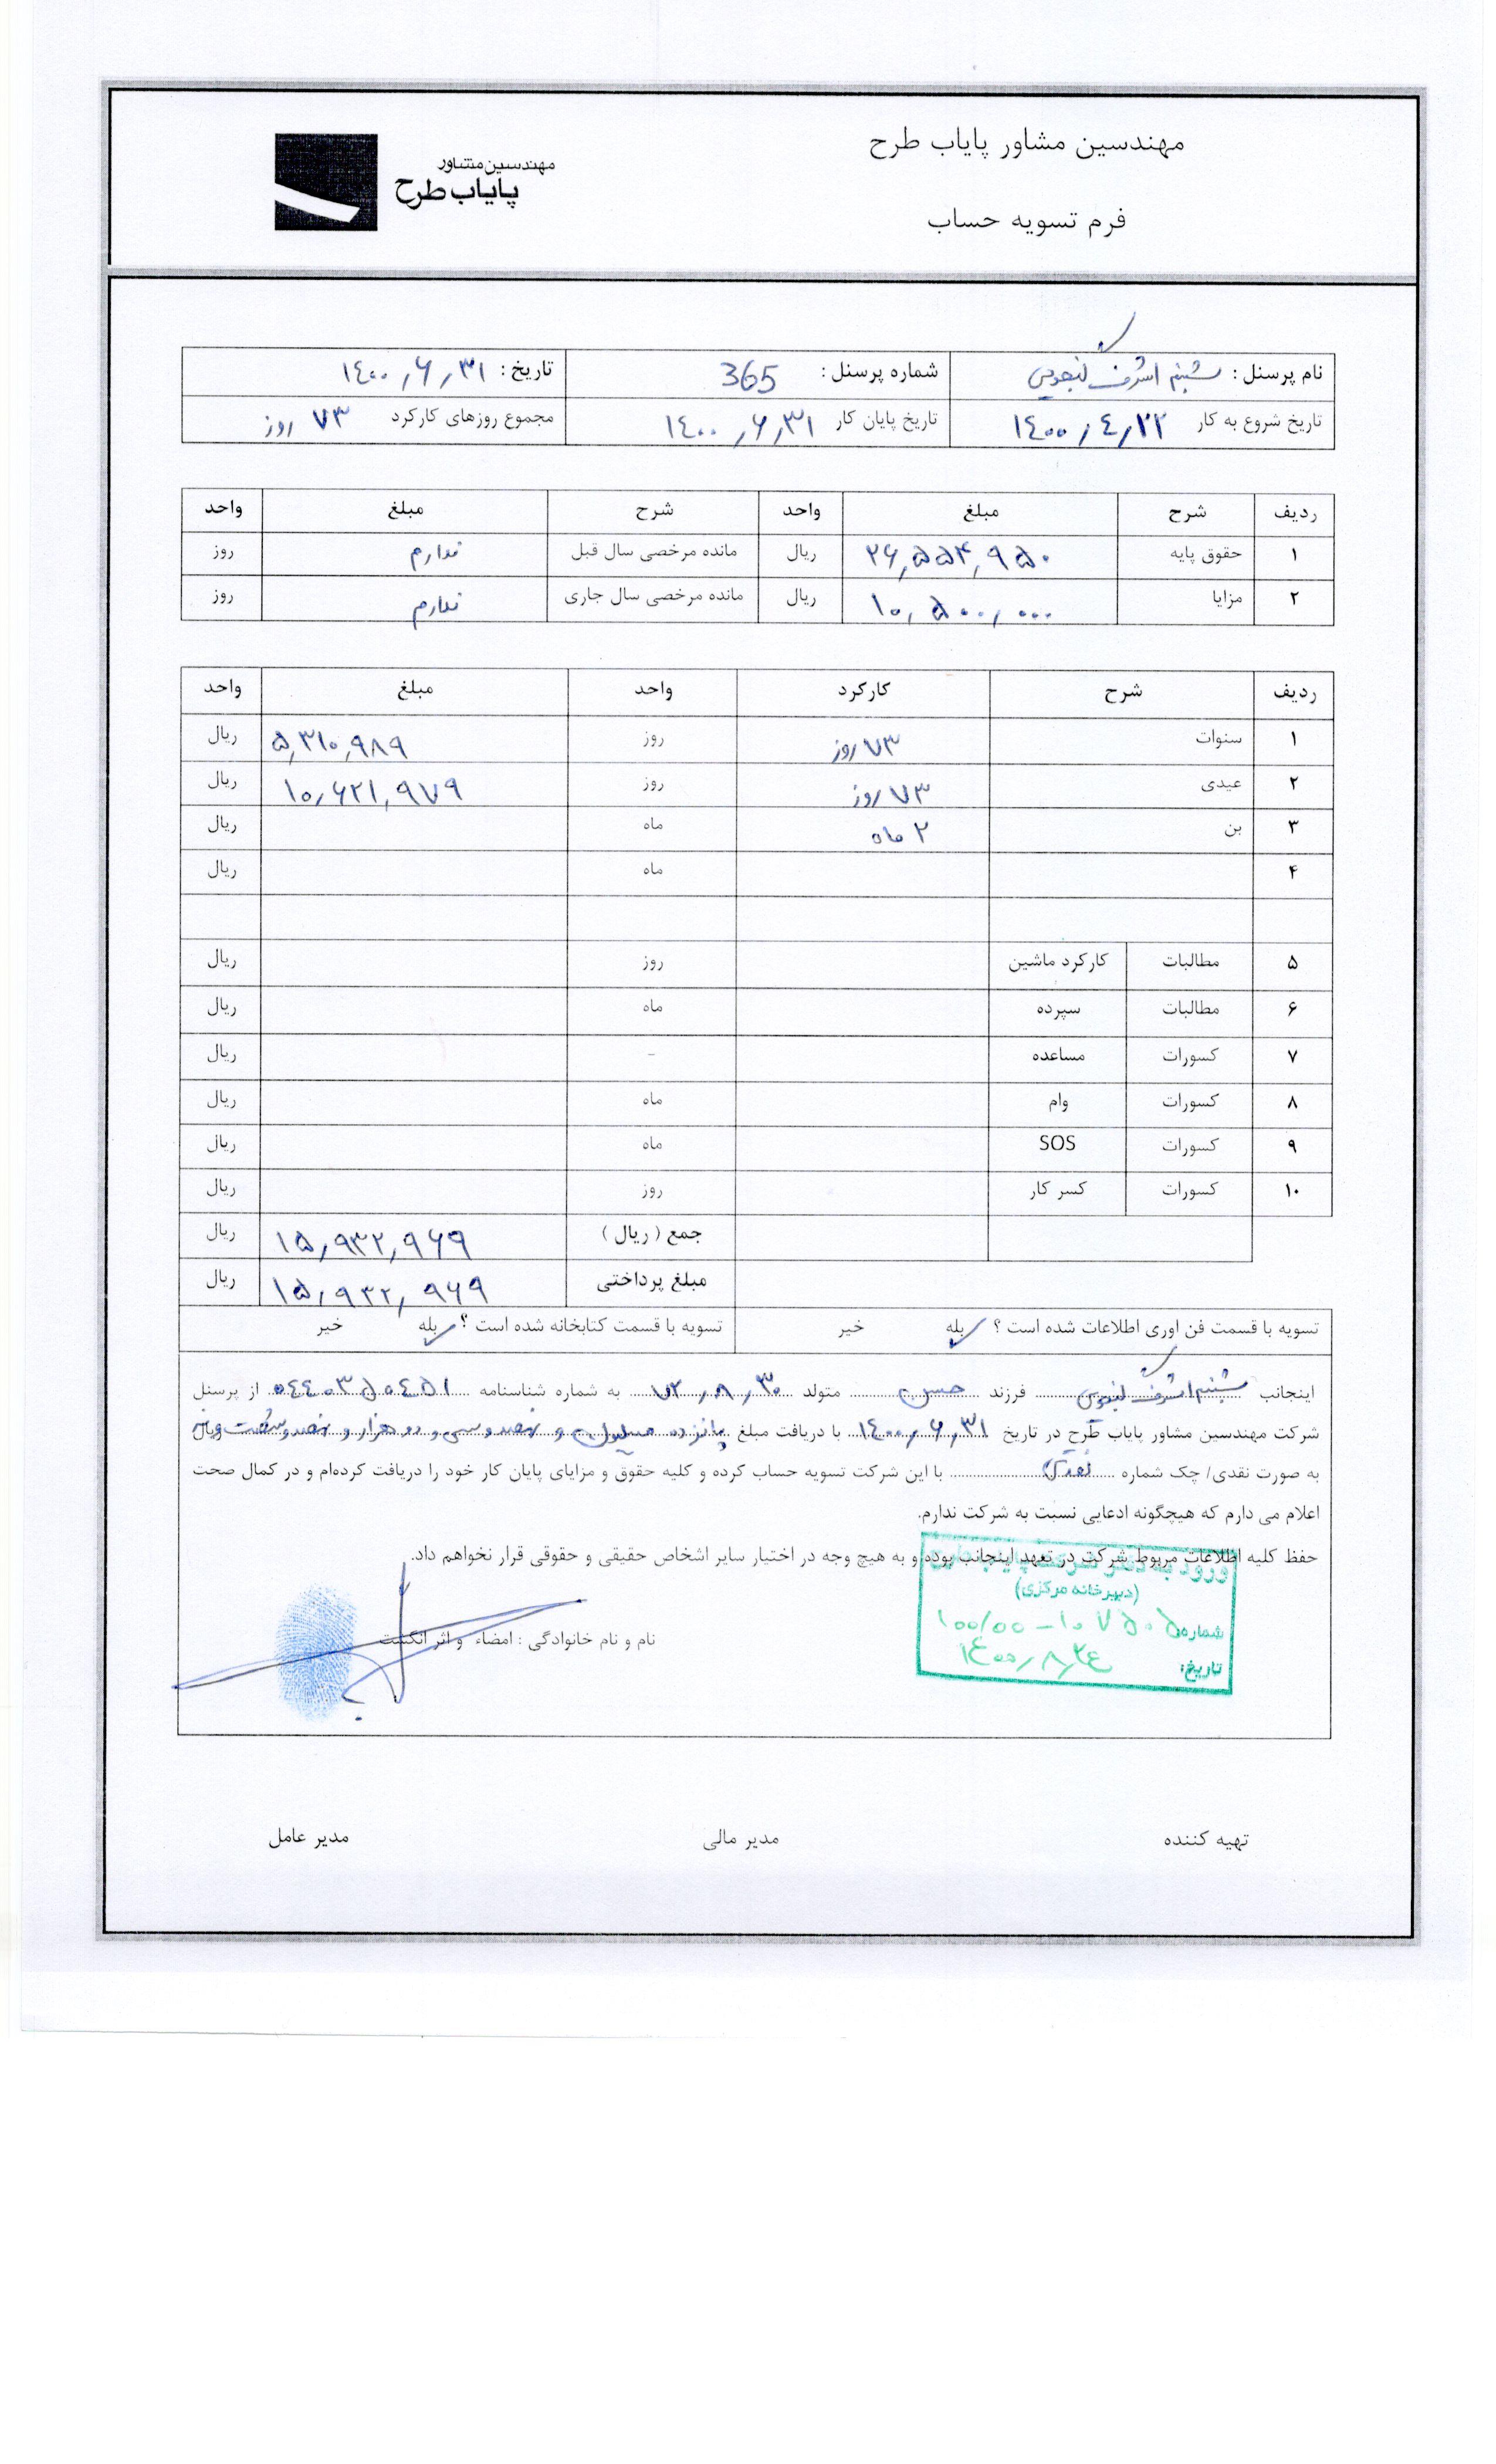 مهندسین مشاور پایاب طرح
مهندسین مشاور
پایاب طرح
فرم تسویه حساب
نام پرسنل : شبنم اشرف گنجویی شماره پرسنل : 365 تاریخ : ۱۴۰۰,۶,۳۱
تاریخ شروع به کار ۱۴۰۰,۴,۲۲ تاریخ پایان کار ۱۴۰۰,۶,۳۱ مجموع روزهای کارکرد ۷۳ روز
ردیف شرح مبلغ واحد شرح مبلغ واحد
۱ حقوق پایه ۲۶,۵۵۴,۹۵۰ ریال مانده مرخصی سال قبل ندارم روز
۲ مزایا ۱۰,۵۰۰,۰۰۰ ریال مانده مرخصی سال جاری ندارم روز
ردیف شرح کارکرد واحد مبلغ واحد
۱ سنوات ۷۳ روز روز ۵,۳۱۰,۹۸۹ ریال
۲ عیدی ۷۳ روز روز ۱۰,۶۲۱,۹۷۹ ریال
۳ بن ۲ ماه ماه ریال
۴ ماه ریال
۵ مطالبات کارکرد ماشین روز ریال
۶ مطالبات سپرده ماه ریال
۷ کسورات مساعده - ریال
۸ کسورات وام ماه ریال
۹ کسورات SOS ماه ریال
۱۰ کسورات کسر کار روز ریال
جمع ( ریال ) ۱۵,۹۳۲,۹۶۹ ریال
مبلغ پرداختی ۱۵,۹۳۲,۹۶۹ ریال
تسویه با قسمت فن اوری اطلاعات شده است ؟ بله خیر تسویه با قسمت کتابخانه شده است ؟ بله خیر
اینجانب شبنم اشرف گنجویی فرزند حسن متولد ۷۲,۸,۳۰ به شماره شناسنامه ۰۴۴۰۳۵۰۴۵۱ از پرسنل
شرکت مهندسین مشاور پایاب طرح در تاریخ ۱۴۰۰,۶,۳۱ با دریافت مبلغ پانزده میلیون و نهصد و سی و دو هزار و نهصد و شصت و نه ریال
به صورت نقدی/ چک شماره نقدی با این شرکت تسویه حساب کرده و کلیه حقوق و مزایای پایان کار خود را دریافت کرده‌ام و در کمال صحت
اعلام می دارم که هیچگونه ادعایی نسبت به شرکت ندارم.
حفظ کلیه اطلاعات مربوط شرکت در تعهد اینجانب بوده و به هیچ وجه در اختیار سایر اشخاص حقیقی و حقوقی قرار نخواهم داد.
ورود به دفتر شرکت پایاب طرح
(دبیرخانه مرکزی)
شماره: ۱۰۰/۰۰-۱۰۷۵۰۵
تاریخ: ۱۴۰۰,۸,۲۴
نام و نام خانوادگی : امضاء و اثر انگشت
تهیه کننده مدیر مالی مدیر عامل